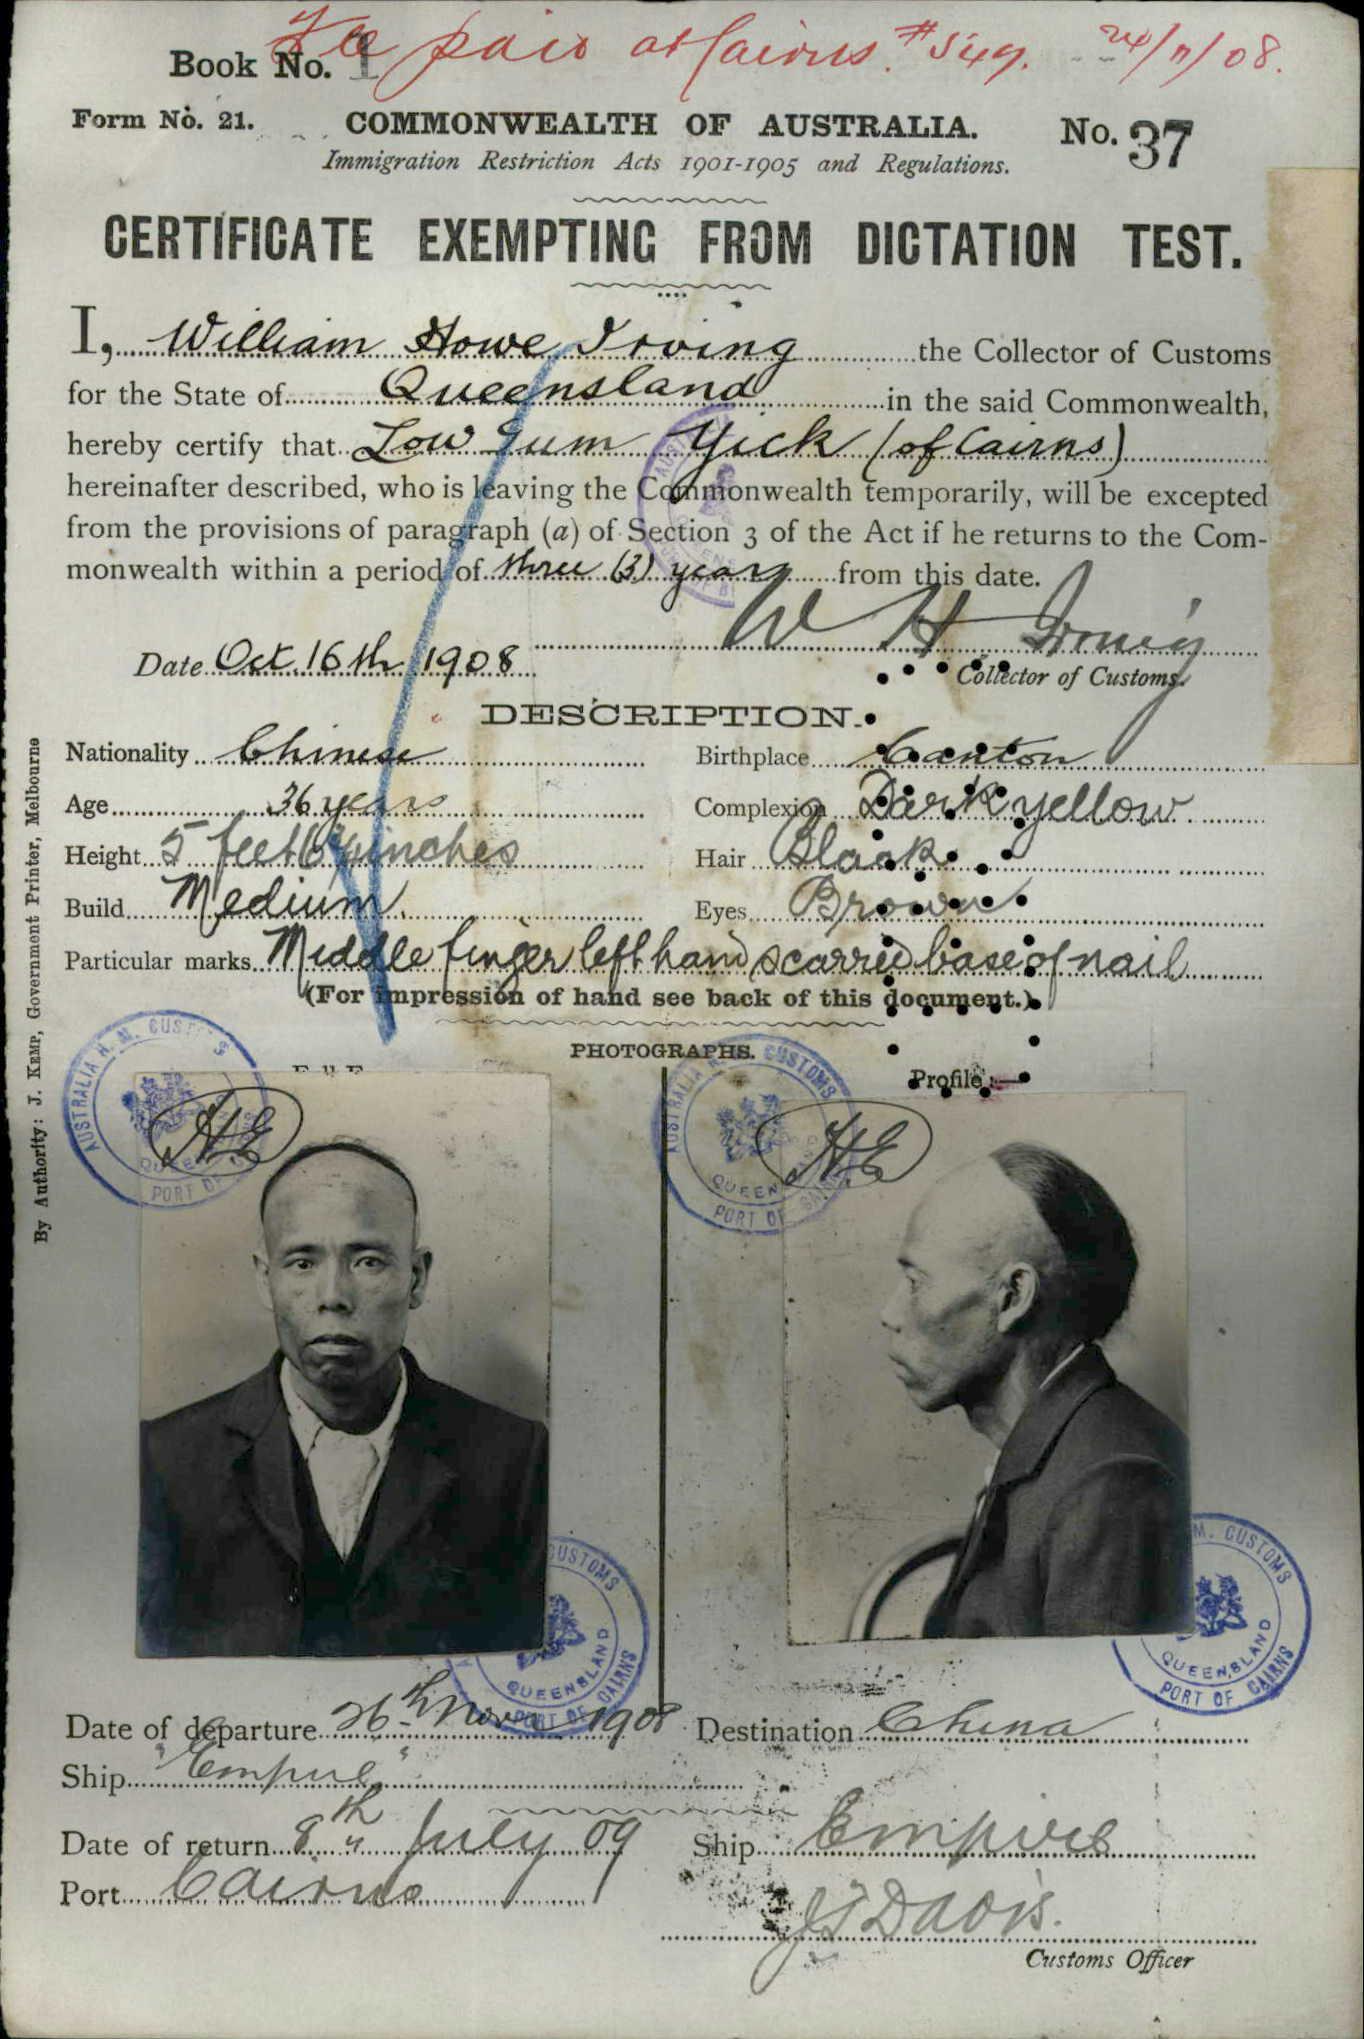 Fee paid at Cairns. #549. 24/11/08.
Book No. 1
Form No. 21. COMMONWEALTH OF AUSTRALIA. No. 37
Immigration Restriction Acts 1901-1905 and Regulations.
CERTIFICATE EXEMPTING FROM DICTATION TEST.
I, William Howe Irving the Collector of Customs
for the State of Queensland in the said Commonwealth,
hereby certify that Low Gum Yick (of Cairns)
hereinafter described, who is leaving the Commonwealth temporarily, will be excepted
from the provisions of paragraph (a) of Section 3 of the Act if he returns to the Com-
monwealth within a period of three (3) years from this date.
W H Irving
Date Oct. 16th 1908
Collector of Customs.
DESCRIPTION.
Nationality Chinese Birthplace Canton
Age 36 years Complexion Dark yellow.
Height 5 feet 6 inches Hair Black
Build Medium. Eyes Brown
Particular marks Middle finger left hand scarred base of nail
(For impression of hand see back of this document.)
PHOTOGRAPHS.
Profile:—
AUSTRALIA H. M. CUSTOMS
QUEENSLAND
PORT OF CAIRNS
HE
AUSTRALIA H. M. CUSTOMS
QUEENSLAND
PORT OF CAIRNS
HE
CUSTOMS
QUEENSLAND
PORT OF CAIRNS
M. CUSTOMS
QUEENSLAND
PORT OF CAIRNS
Date of departure 26th Novr 1908 Destination China
Ship "Empire"
Date of return 8th July 09 Ship Empire
Port Cairns
J T Davis.
Customs Officer
By Authority: J. KEMP, Government Printer, Melbourne